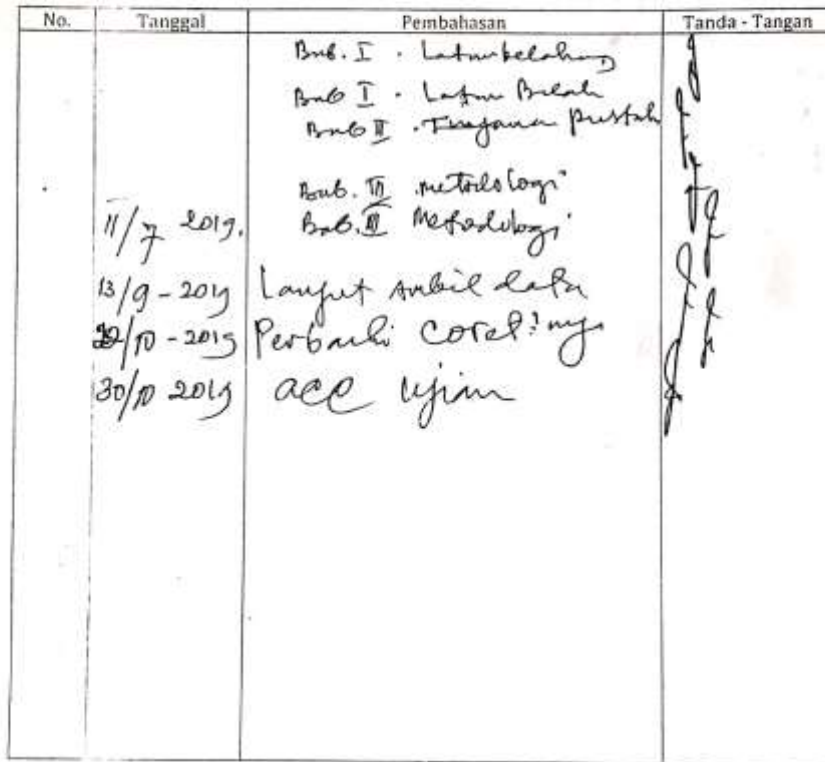 No. Tanggal Pembahasan Tanda - Tangan
Bab. I . Latarbelakang
Bab I . Latar Belak
Bab II . Tinjauan pustak
Bab. III metodologi
11/7 2019. Bab. III Metodologi
13/9 - 2019 Lanjut ambil data
/10 - 2019 Perbaiki coret²nya
30/10 2019 acc ujian